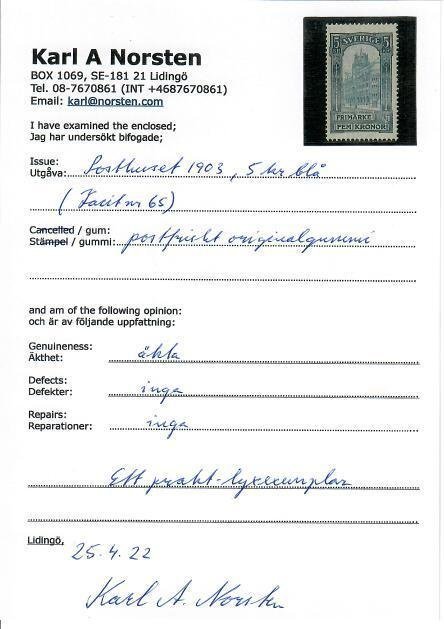 Karl A Norsten
BOX 1069, SE-181 21 Lidingö
Tel. 08-7670861 (INT +4687670861)
Email: karl@norsten.com
5 SVERIGE 5
FRIMÄRKE
FEM KRONOR
I have examined the enclosed;
Jag har undersökt bifogade;
Issue:
Utgåva: Posthuset 1903, 5 kr blå
(Facit nr 65)
Cancelled / gum:
Stämpel / gummi: postfriskt originalgummi
and am of the following opinion:
och är av följande uppfattning:
Genuineness:
Äkthet: äkta
Defects:
Defekter: inga
Repairs:
Reparationer: inga
Ett prakt-lyxexemplar
Lidingö, 25.4.22
Karl A. Norsten